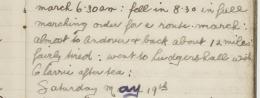 march 6.30am: fell in 8.30 in full
marching order for a route march:
almost to Andover & back about 12 miles:
fairly tired: went to Ludgershall with
C Harris after tea:
Saturday May 19th